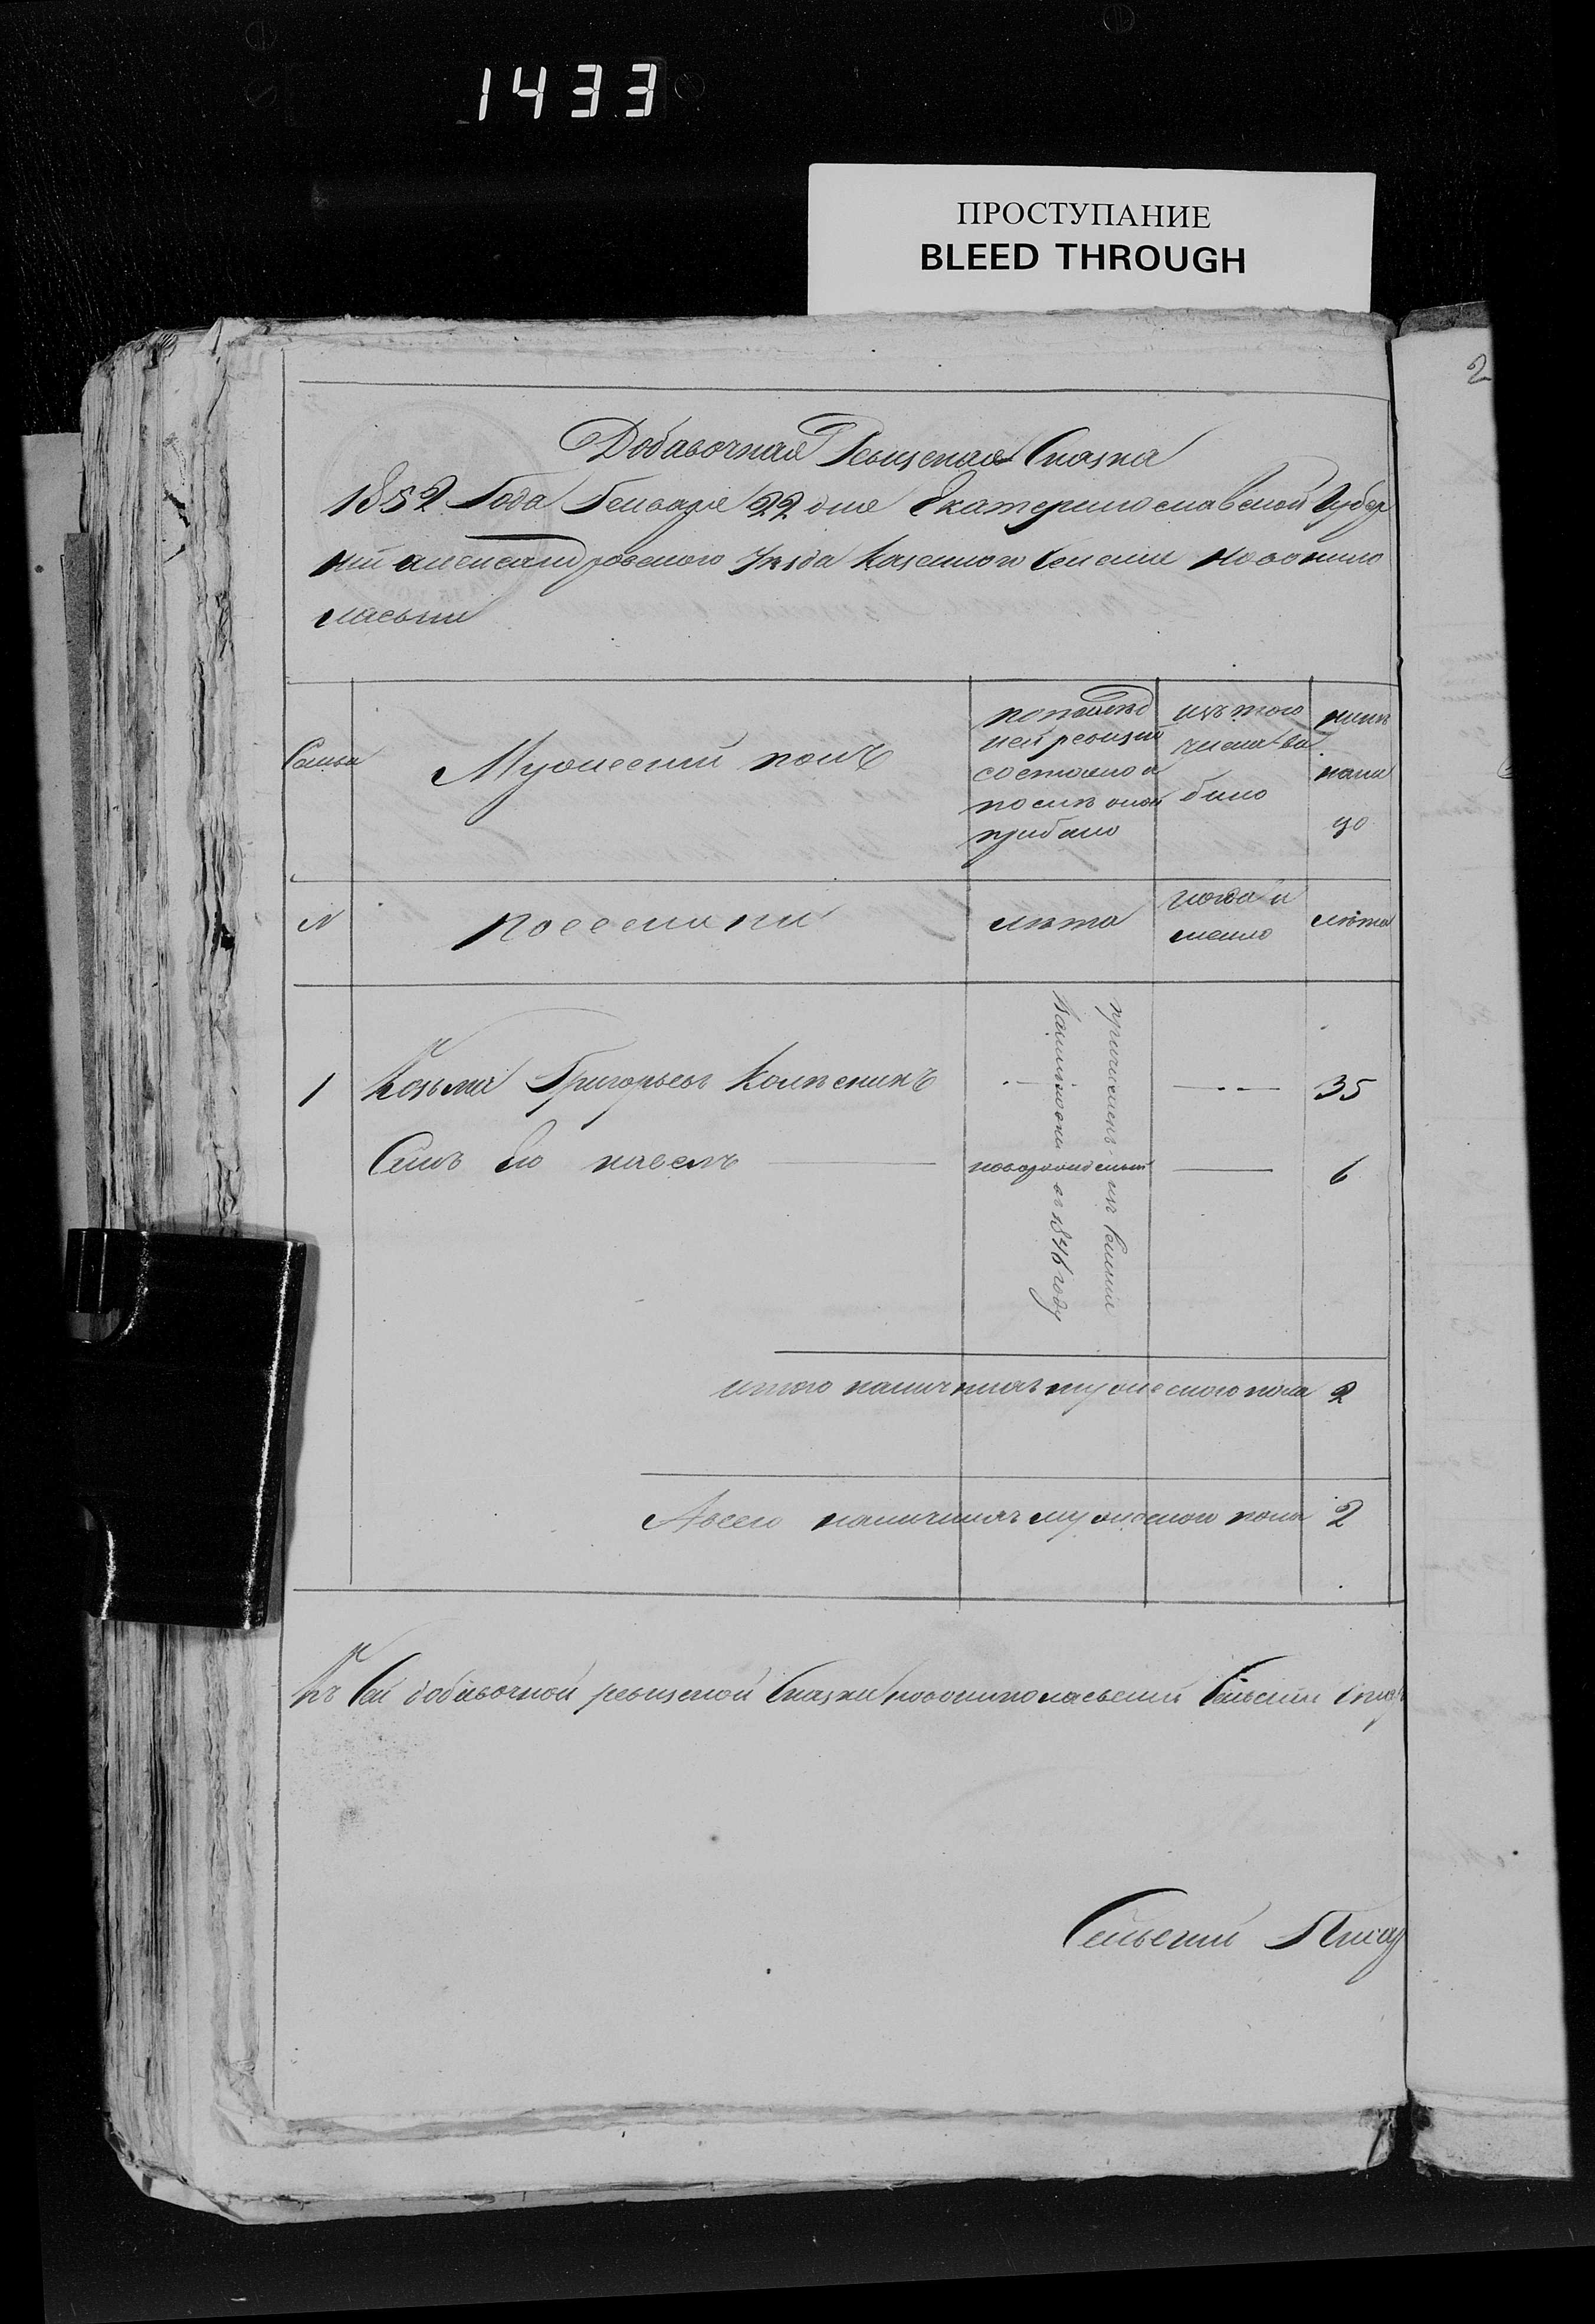 1433
ПРОСТУПАНИЕ
BLEED THROUGH
2
Добавочная Ревизская Сказка
1852 Года Генваря 22 дня Екатеринославской Губер
нии александровского Уезда Казенного Селения Новонико
лаевки
Семьи
Мужеский полъ
по послед
ней ревизии
состояло и
после оной
прибыло
изъ того
числа вы
было
ныне
нали
цо
N
поселяни
лета
когда и
лета
1 Козьма Григорьевъ 35
причисленъ изъ
въ 1846 году
Сынъ его павелъ новорожденый 6
итого наличныхъ мужеского пола 2
Авсего наличныхъ мужеского пола 2
Къ Сей добавочной ревизской Сказки новониколаевский Сельский
Сельский Писар